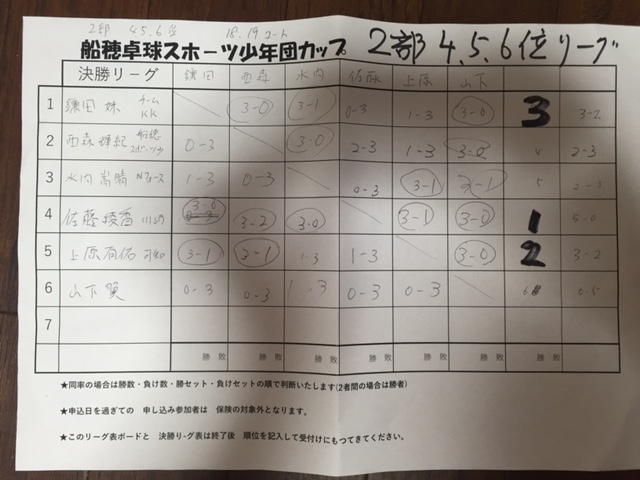 2部 4.5.6位 18.19コート
船穂卓球スポーツ少年団カップ 2部 4.5.6位リーグ
決勝リーグ 鎌田 西森 水内 佐藤 上原 山下
1 鎌田 チームKK 3-0 3-1 0-3 1-3 3-0 3 3-2
2 西森輝紀 船穂スポーツ少 0-3 3-0 2-3 1-3 3-0 4 2-3
3 水内嵩晴 1-3 0-3 0-3 3-1 3-1 5
4 佐藤綾香 3-0 3-2 3-0 3-1 3-0 1 5-0
5 上原有佑 3-1 3-1 1-3 1-3 3-0 2 3-2
6 山下 0-3 0-3 1-3 0-3 0-3 6 0-5
7
勝 敗 勝 敗 勝 敗 勝 敗 勝 敗 勝 敗 勝 敗 勝 敗
★同率の場合は勝数・負け数・勝セット・負けセットの順で判断いたします(2者間の場合は勝者)
★申込日を過ぎての 申し込み参加者は 保険の対象外となります。
★このリーグ表ボードと 決勝リーグ表は終了後 順位を記入して受付けにもってきてください。